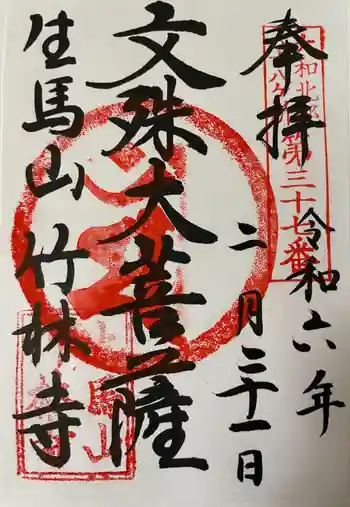 奉拝
大和北部八十八ヶ所霊場第三十七番
令和六年
二月二十一日
文殊大菩薩
生馬山 竹林寺